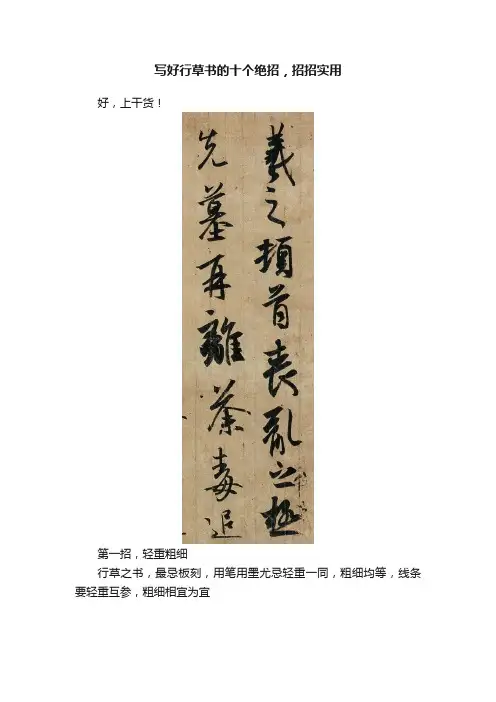 写好行草书的十个绝招，招招实用
好，上干货！
羲之顿首丧乱之极
先墓再離荼毒追
第一招，轻重粗细
行草之书，最忌板刻，用笔用墨尤忌轻重一同，粗细均等，线条
要轻重互参，粗细相宜为宜